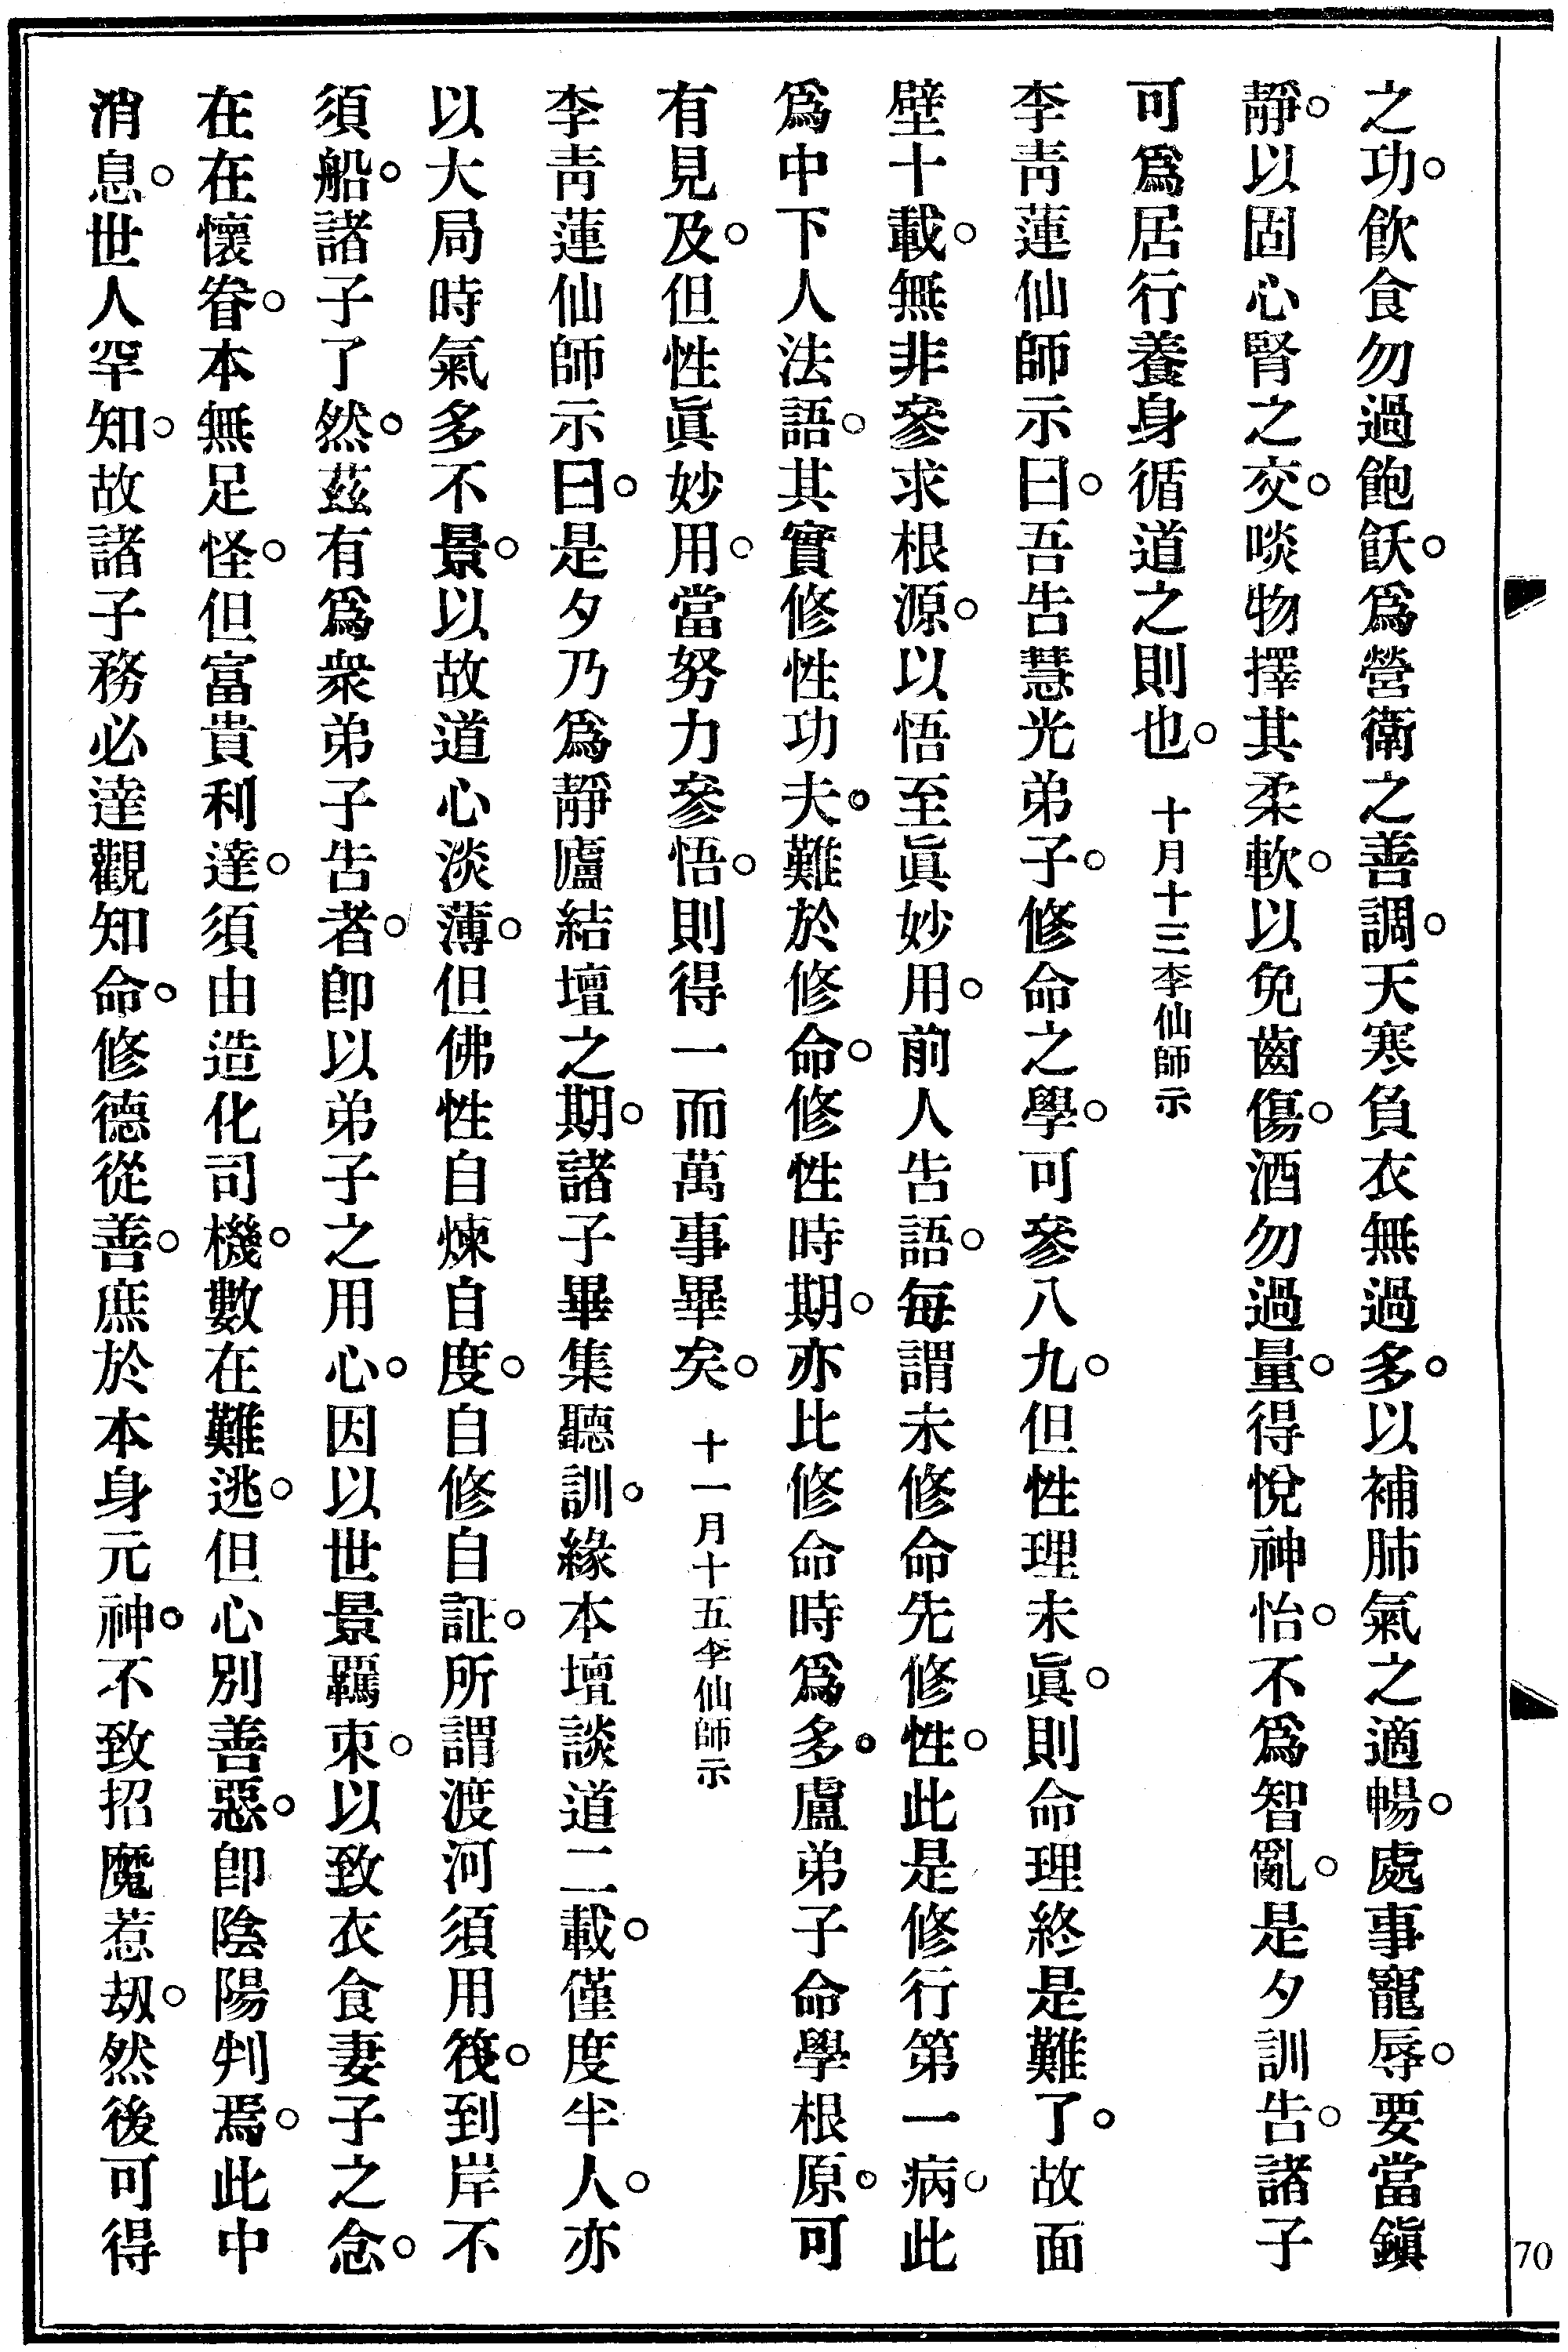 之功。飲食勿過飽飫。爲營衛之善調。天寒負衣無過多。以補肺氣之適暢。處事寵辱。要當鎭
靜。以固心腎之交。啖物擇其柔軟。以免齒傷。酒勿過量。得悅神怡。不爲智亂。是夕訓告。諸子
可爲居行養身循道之則也。 十月十三李仙師示
李靑蓮仙師示曰。吾告慧光弟子。修命之學。可參八九。但性理未眞。則命理終是難了。故面
壁十載。無非參求根源。以悟至眞妙用。前人告語。每謂未修命先修性。此是修行第一病。此
爲中下人法語。其實修性功夫。難於修命。修性時期。亦比修命時爲多。盧弟子命學根原。可
有見及。但性眞妙用。當努力參悟。則得一而萬事畢矣。 十一月十五李仙師示
李靑蓮仙師示曰。是夕乃爲靜廬結壇之期。諸子畢集聽訓。緣本壇談道二載。僅度半人。亦
以大局時氣多不景。以故道心淡薄。但佛性自煉自度。自修自証。所謂渡河須用筏。到岸不
須船。諸子了然。茲有爲衆弟子告者。卽以弟子之用心。因以世景羈束。以致衣食妻子之念。
在在懷眷。本無足怪。但富貴利達。須由造化司機。數在難逃。但心別善惡。卽陰陽判焉。此中
消息。世人罕知。故諸子務必達觀知命。修德從善。庶於本身元神。不致招魔惹劫。然後可得
70